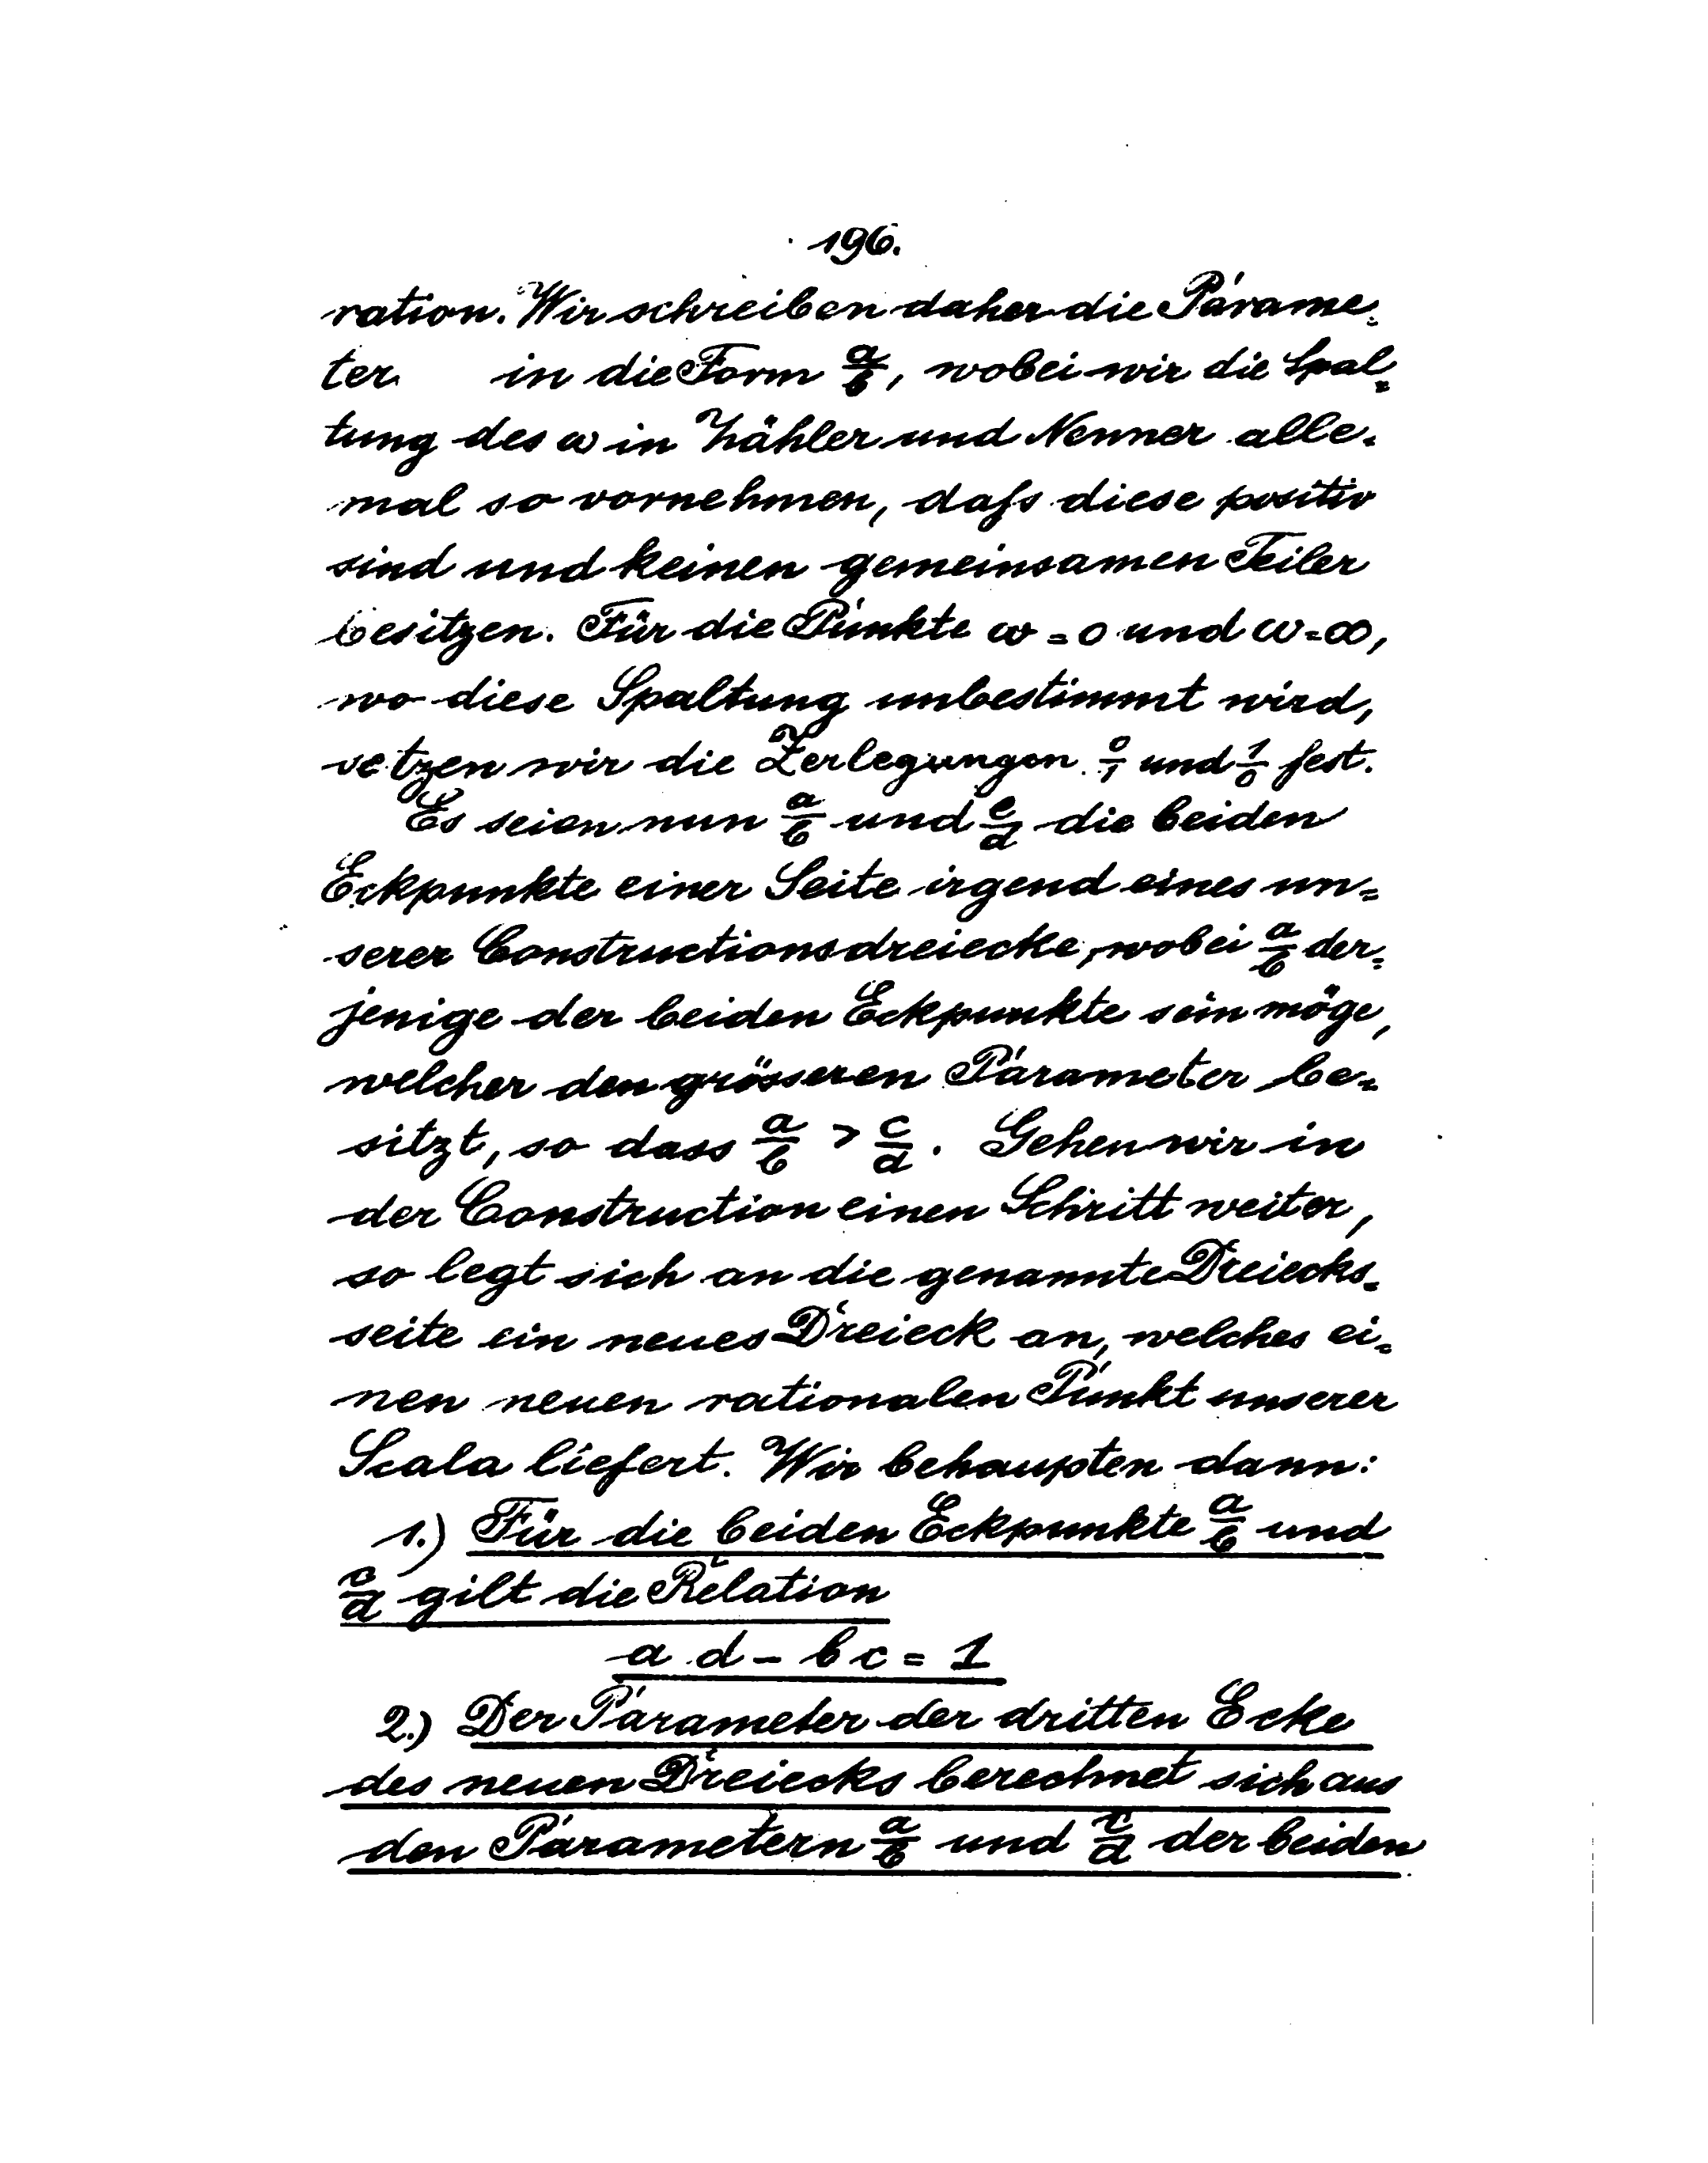 196.
ration. Wir schreiben daher die Parame-
ter in die Form a/b, wobei wir die Spal-
tung des ω in Zähler und Nenner alle-
mal so vornehmen, daſs diese positiv
sind und keinen gemeinsamen Teiler
besitzen. Für die Punkte ω = 0 und ω = ∞,
wo diese Spaltung unbestimmt wird,
setzen wir die Zerlegungen 0/1 und 1/0 fest.
Es seien nun a/b und c/d die beiden
Eckpunkte einer Seite irgend eines un-
serer Constructionsdreiecke, wobei a/b der-
jenige der beiden Eckpunkte sein möge,
welcher den grösseren Parameter be-
sitzt, so dass a/b > c/d. Gehen wir in
der Construction einen Schritt weiter,
so legt sich an die genannte Dreiecks-
seite ein neues Dreieck an, welches ei-
nen neuen rationalen Punkt unserer
Scala liefert. Wir behaupten dann:
1.) Für die beiden Eckpunkte a/b und
c/d gilt die Relation
a d - b c = 1
2.) Der Parameter der dritten Ecke
des neuen Dreiecks berechnet sich aus
den Parametern a/b und c/d der beiden